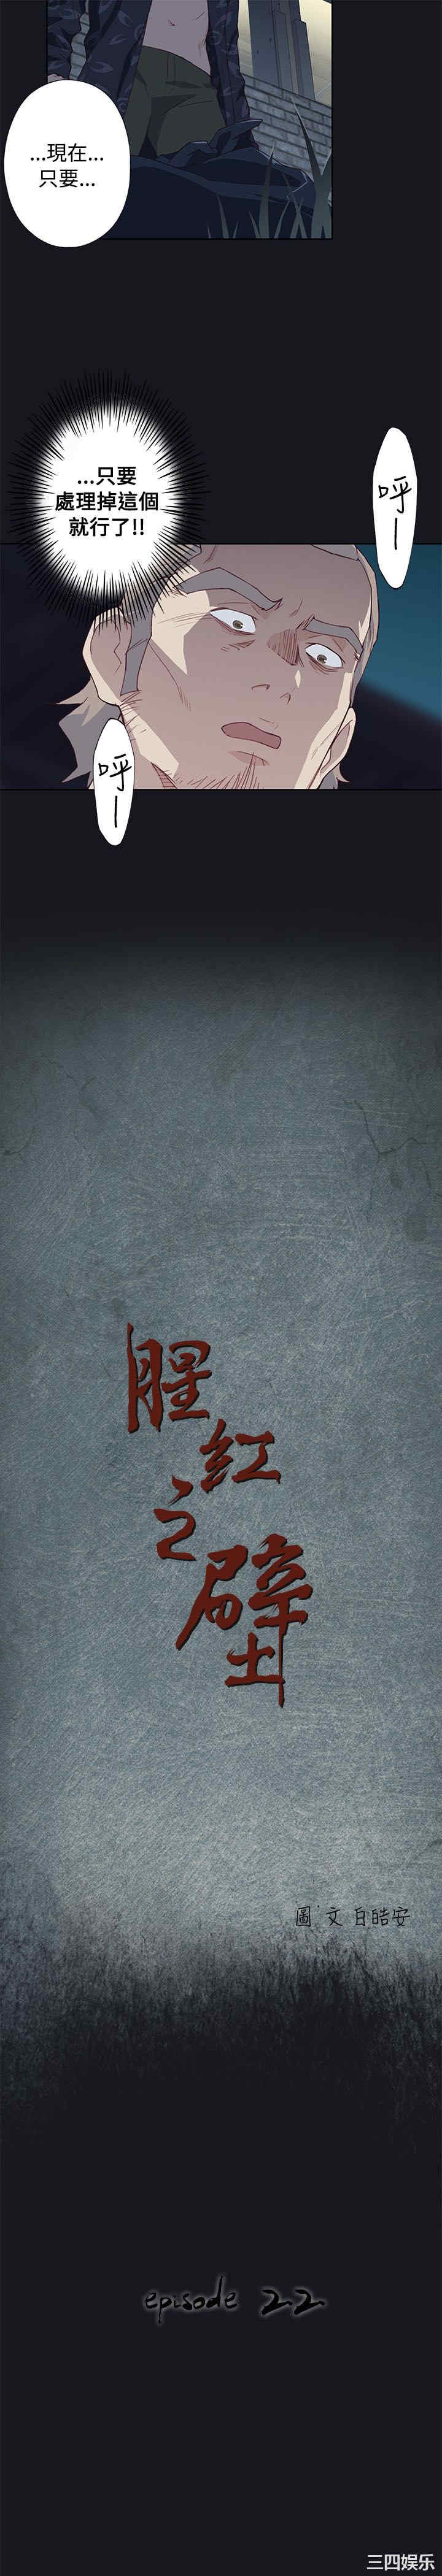 ...現在...
只要...
...只要
處理掉這個
就行了!!
呼—
呼—
腥
紅
之
壁
圖·文 白皓安
episode 22
三四娱乐